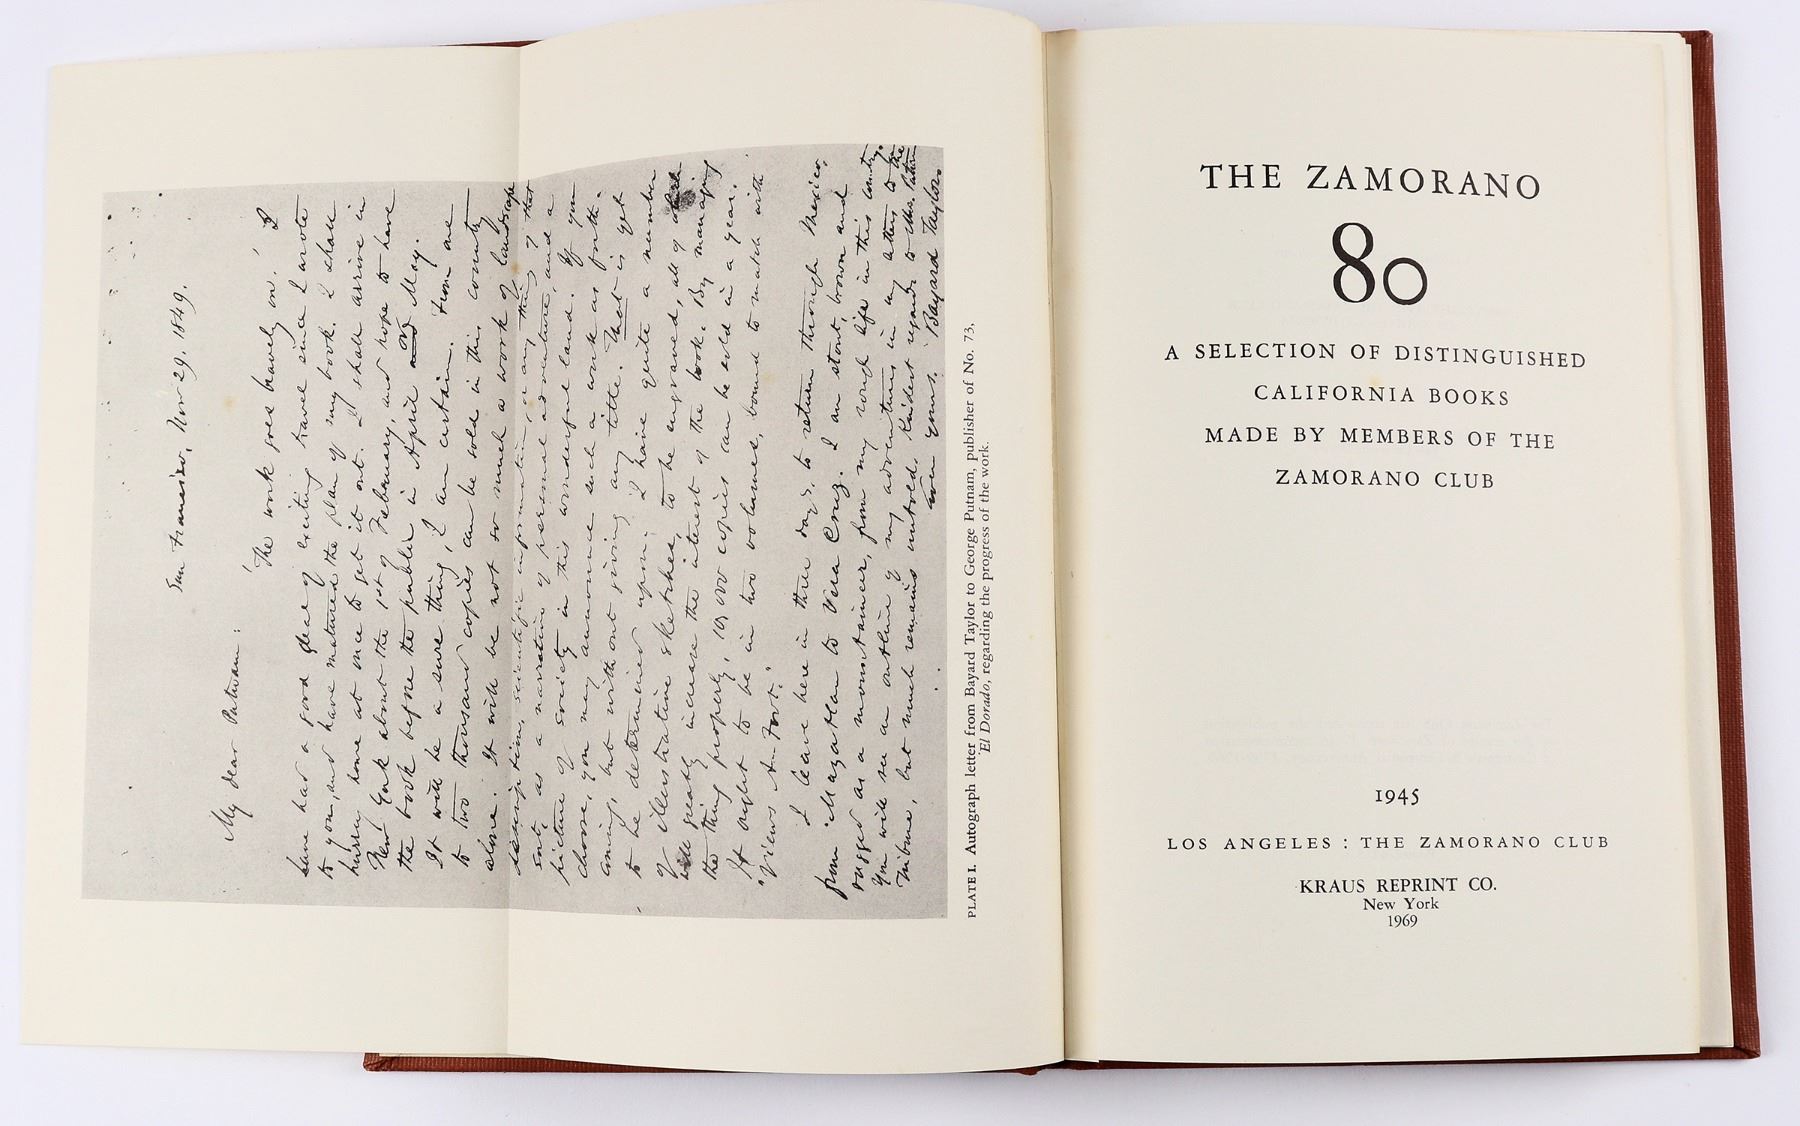 San Francisco, Nov. 29. 1849.
My dear Putnam:
The work goes bravely on. I
have had a good deal of exciting travel since I wrote
to you, and have matured the plan of my book. I shall
hurry home at once to get it out. I shall arrive in
New York about the 1st of February, and hope to have
the book before the public in April or May.
It will be a sure thing, I am certain. From one
to two thousand copies can be sold in this country
alone. It will be not so much a work of landscape
description, scientific information, or any thing of that
sort, as a narrative of personal adventure, and a
picture of society in this wonderful land. If you
choose, you may announce such a work as forth-
coming, but without giving any title. That is yet
to be determined upon. I have quite a number
of illustrative sketches, to be engraved, all of which
will greatly increase the interest of the book. By managing
the thing properly, 10,000 copies can be sold in a year.
It ought to be in two volumes, bound to match with
"Views A-Foot."
I leave here in three days, to return through Mexico,
from Mazatlan to Vera Cruz. I am stout, brown and
rugged as a mountaineer, from my rough life in this country.
You will see an outline of my adventures in my letters to the
Tribune, but much remains untold. Kindest regards to Mrs. Putnam
Ever yours, Bayard Taylor.
PLATE I. Autograph letter from Bayard Taylor to George Putnam, publisher of No. 73,
El Dorado, regarding the progress of the work.
THE ZAMORANO
80
A SELECTION OF DISTINGUISHED
CALIFORNIA BOOKS
MADE BY MEMBERS OF THE
ZAMORANO CLUB
1945
LOS ANGELES : THE ZAMORANO CLUB
KRAUS REPRINT CO.
New York
1969